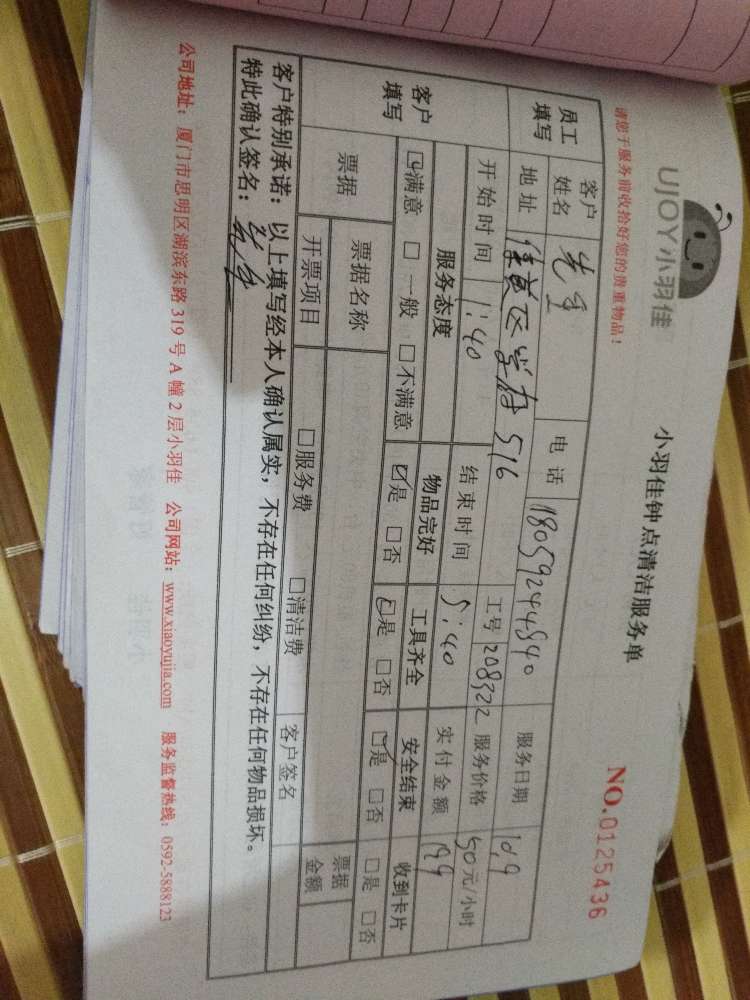 UJOY小羽佳
小羽佳钟点清洁服务单
NO.0125436
请您于服务前收拾好您的贵重物品！
员工填写 客户姓名 先生 电话 18059244840 服务日期 10.9
地址 516 工号 208322 服务价格 50元/小时
开始时间 1:40 结束时间 5:40 实付金额 199
客户填写 服务态度 物品完好 工具齐全 安全结束 收到卡片
☑满意 □一般 □不满意 ☑是 □否 ☑是 □否 ☑是 □否 □是 □否
票据 票据名称 票据金额
开票项目 □服务费 □清洁费 客户签名
客户特别承诺：以上填写经本人确认属实，不存在任何纠纷，不存在任何物品损坏。
特此确认签名：
公司地址：厦门市思明区湖滨东路319号A幢2层小羽佳 公司网站：www.xiaoyujia.com 服务监督热线：0592-5888123